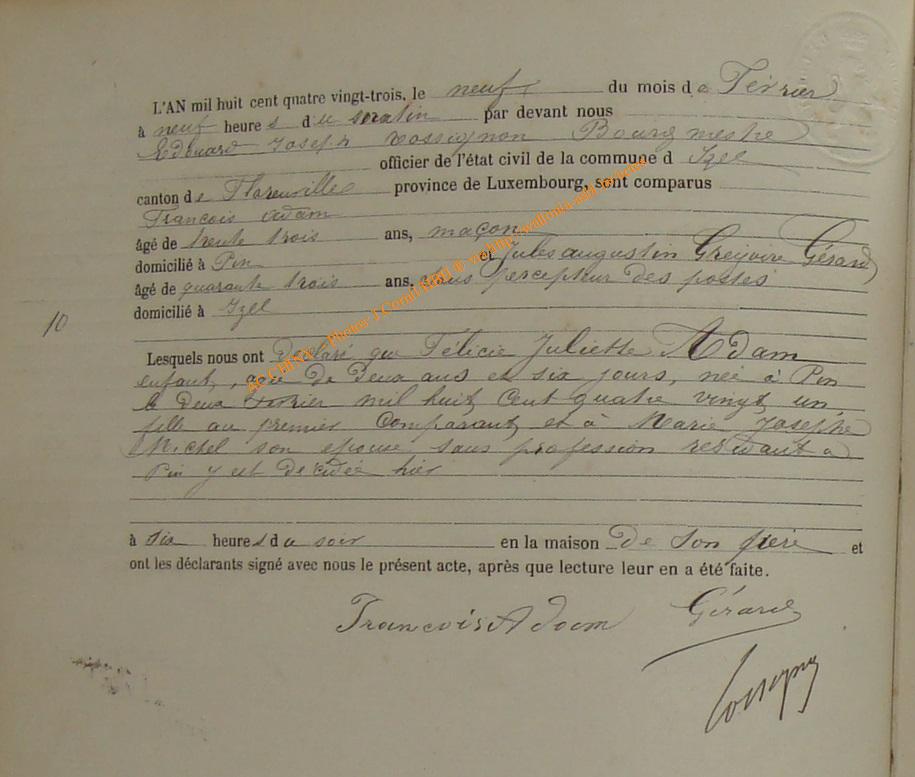 L'AN mil huit cent quatre vingt-trois, le neuf du mois de Février
à neuf heures du matin par devant nous
Edouard Joseph Rossignon Bourgmestre
officier de l'état civil de la commune d Izel
canton de Florenville province de Luxembourg, sont comparus
François Adam
âgé de trente trois ans, maçon
domicilié à Pin et Jules augustin Grégoire Gérard
âgé de quarante trois ans, sous percepteur des postes
domicilié à Izel
10
Lesquels nous ont déclaré que Félicie Juliette Adam
enfant, agée de deux ans et six jours, née à Pin
le deux Février mil huit cent quatre vingt un,
fille au premier Comparant et à Marie Josèphe
Michel son épouse sans profession résidant à
Pin y est décédée hier
à six heures du soir en la maison de son père et
ont les déclarants signé avec nous le présent acte, après que lecture leur en a été faite.
François Adam Gérard